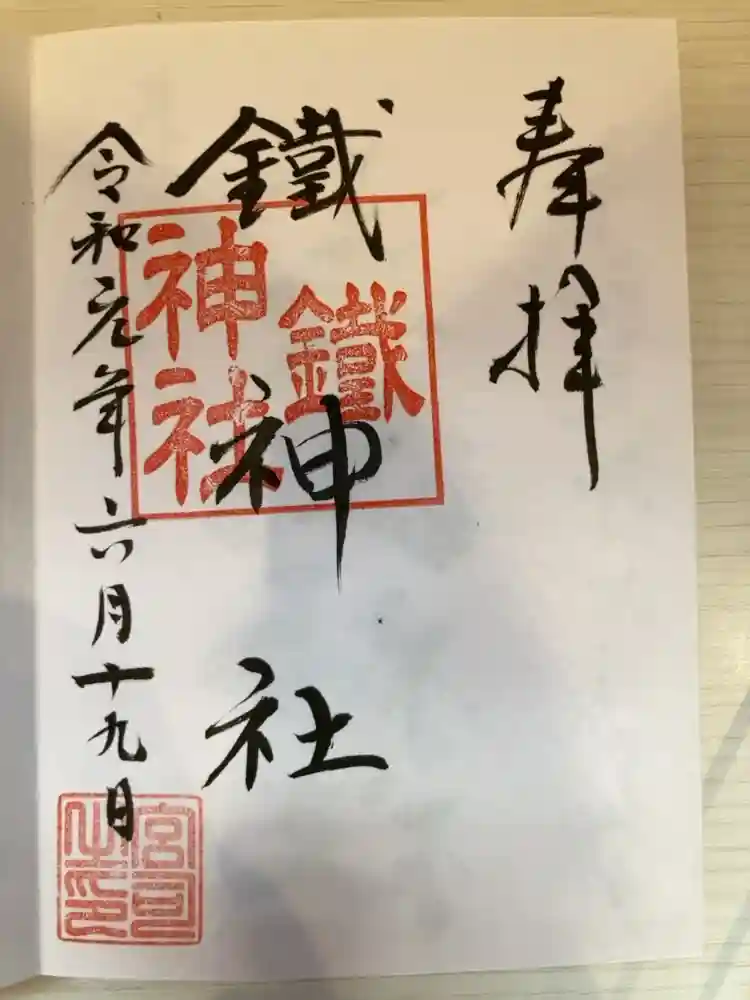 奉拝
鐵神社
鐵
神社
令和元年六月十九日
宮司
之印